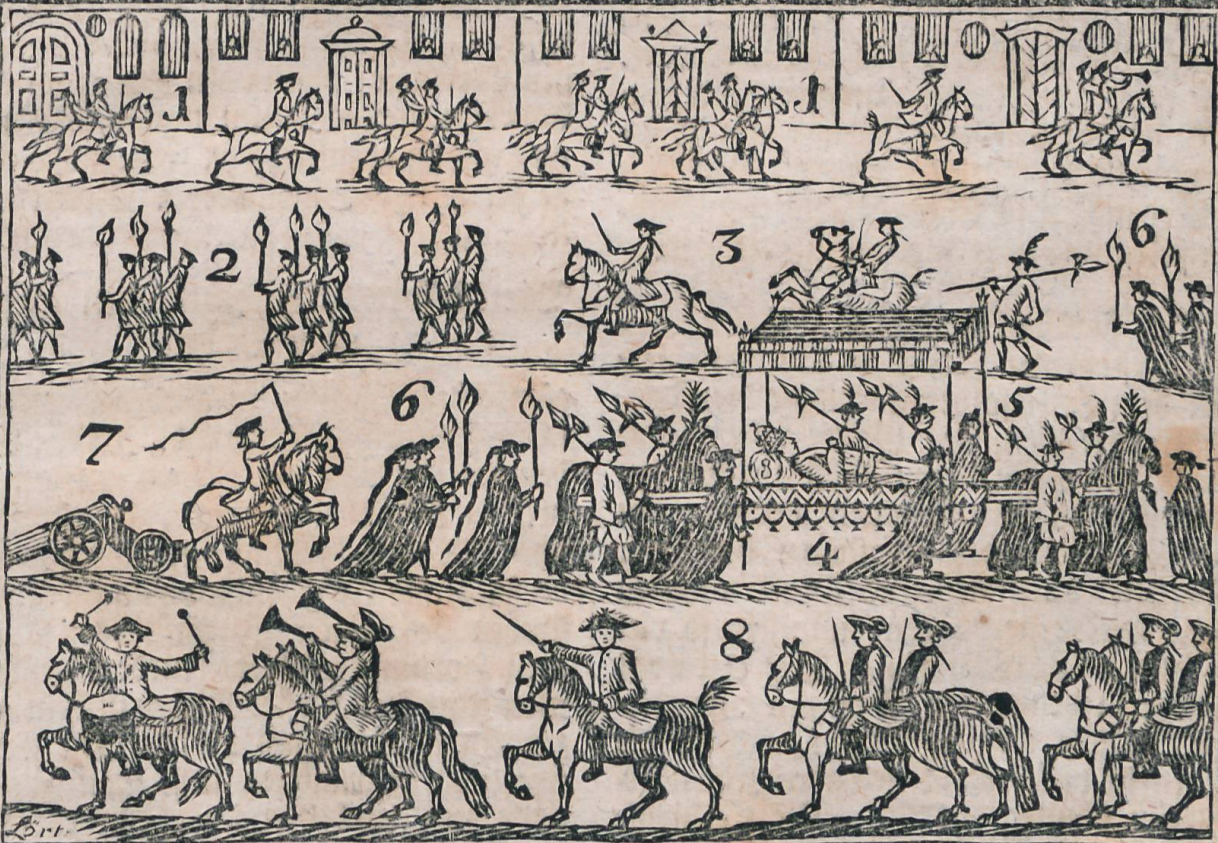 1 1
2 3 6
7 6 5
4
8
8
Lört.